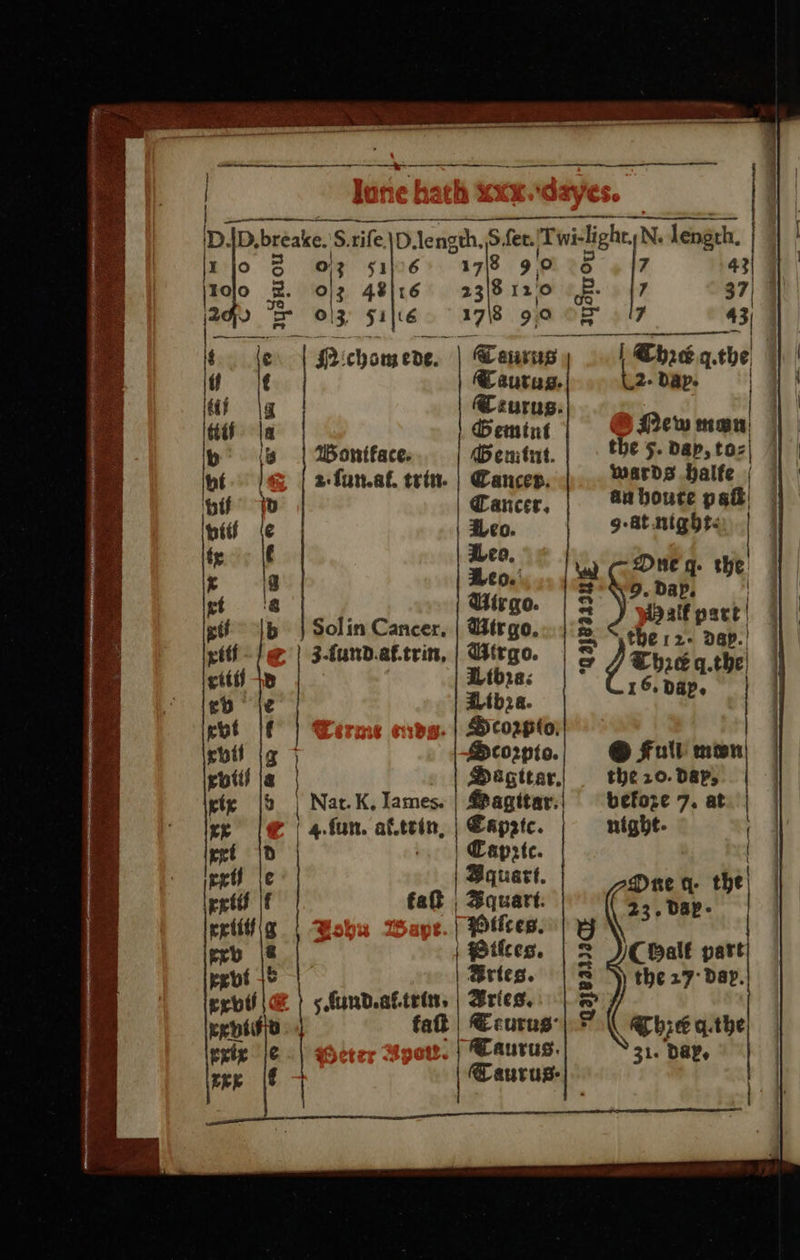 Iune hath xxx. dayes.
D. D.breake. S.rise. D.length. S.set. Twi-light. N. length.
1 0 no night 0 3 51 16 17 8 9 0 no night 7 43
10 0 0 3 48 16 23 8 12 0 7 37
20 0 0 3 51 16 17 8 9 0 7 43
i e Nichomede. Taurus Thrée q. the
ij f Taurus. 2. day.
iij g Taurus.
iiij a Gemini New moon
v b Boniface. Gemini. the 5. day, to-
vi C 2. sun. af. trin. Cancer. wards halfe
vij d Cancer. an houre past
viij e Leo. 9. at night.
ix f Leo. One q. the
x g Leo. Increased 9. day.
xi a Virgo. Half part
xij b Sol in Cancer. Virgo. the 12. day.
xiij C 3. sund. af. trin. Virgo. Thrée q. the
xiiij d Libra. 16. day.
xv e Libra.
xvi f Terme ends. Scorpio.
xvij g Scorpio. Full moon
xviij a Sagittar. the 20. day,
xix b Nat. K. Iames. Sagittar. before 7. at
xx C 4. sun. af. trin. Capric. night.
xxi d Capric.
xxij e Aquari. One q. the
xxiij f fast Aquari. 23. day.
xxiiij g Iohn Bapt. Pisces. Decreased
xxv a Pisces. Half part
xxvi b Aries. the 27. day.
xxvij C 5. sund. af. trin. Aries.
xxviij d fast Taurus. Thrée q. the
xxix e Peter Apost. Taurus. 31. day.
xxx f Taurus.